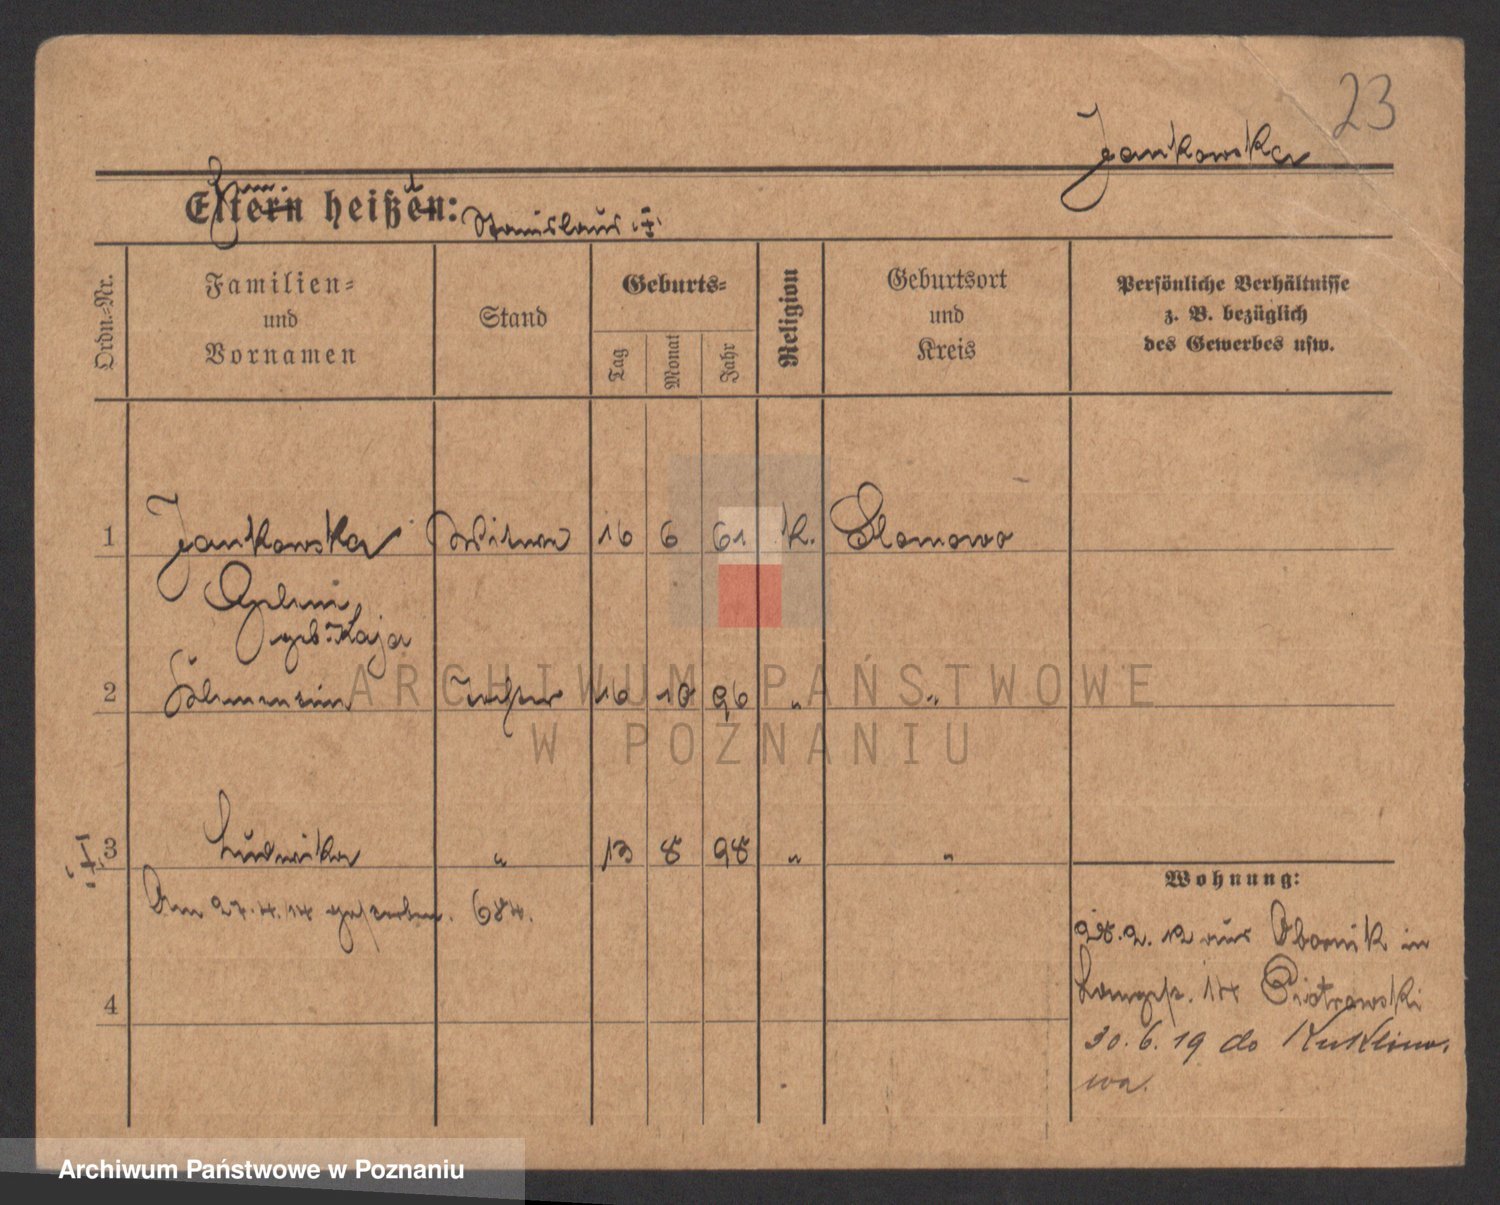 23
Jankowska
Eltern heißen:
Stanislaus †
Ordn.-Nr.
Familien-
und
Vornamen
Stand
Geburts-
Tag
Monat
Jahr
Religion
Geburtsort
und
Kreis
Persönliche Verhältnisse
z. B. bezüglich
des Gewerbes usw.
1 Jankowska Witwe 16 6 61 k. Slomowo
geb. Kaja
2 Tochter 16 10 96 " "
3 Ludwika " 13 8 98 " "
Am 27.4.14 gestorben. 684.
4
Wohnung:
28.2.12 aus Obornik in
Langestr. 14 Piotrowski
30.6.19 do Kuklino-
wa.
ARCHIWUM PAŃSTWOWE
W POZNANIU
Archiwum Państwowe w Poznaniu